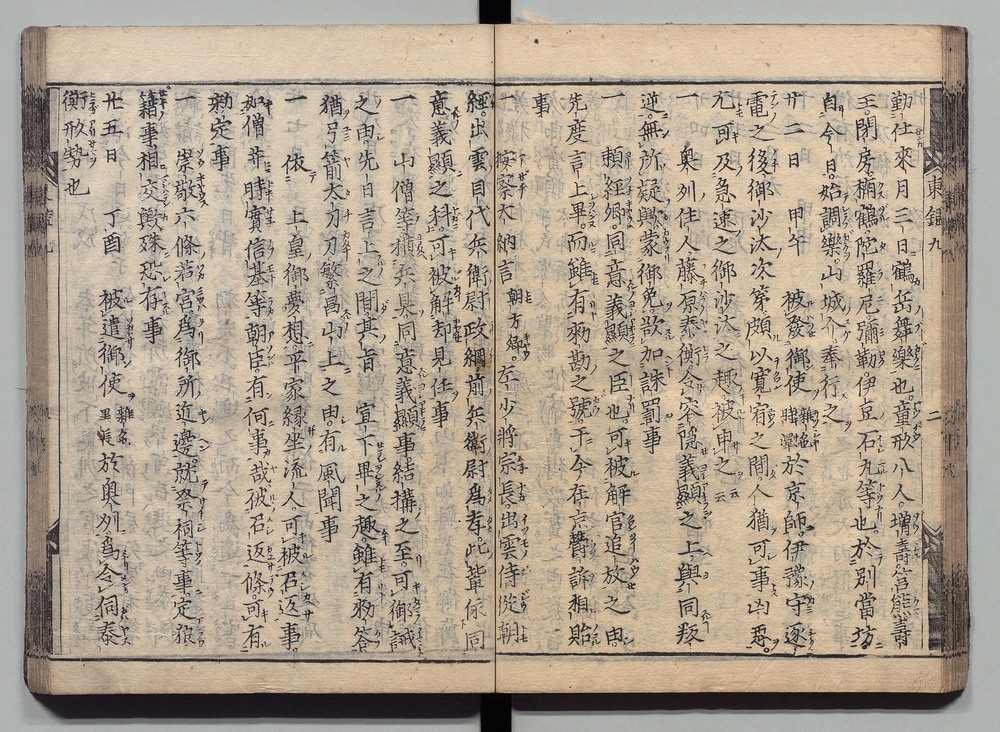 東鑑九
二
勤仕來月三日鶴岳舞樂也童形八人増壽筥熊壽
王閉房楠鶴陀羅尼彌勒伊豆石丸等也於別當坊
自今日始調樂山城介奉行之
廿二日 甲午 被發御使雜色時澤於京師伊豫守逐
電之後御沙汰次第頗以寛宥之間人猶可事凶惡
尤可及急速之御沙汰之趣被申之云云
一 奥州住人藤原泰衡令容隱義顯之上與同叛
逆無所疑歟蒙御免欲加誅罰事
一 頼經卿同意義顯之臣也可被解官追放之由
先度言上畢而雖有勅勘之號于今在京欝訴相貽
事
一 按察大納言朝方卿左少將宗長出雲侍從朝
經出雲目代兵衛尉政綱前兵衛尉爲孝此輩依同
意義顯之科可被解却見任事
一 山僧等横兵具同意義顯事結構之至可御誡
之由先日言上之間其旨 宣下畢之趣雖有勅答
猶弓箭太刀刀繁昌山上之由有風聞事
一 依 上皇御夢想平家縁坐流人可被召返事
如僧并時實信基等朝臣有何事哉彼召返條可有
勅定事
一 崇敬六條若宮爲御所近邊就祭祠等事定狼
籍事相交歟殊恐有事
廿五日 丁酉 被遣御使雜色里長於奥州爲令伺泰
衡形勢也